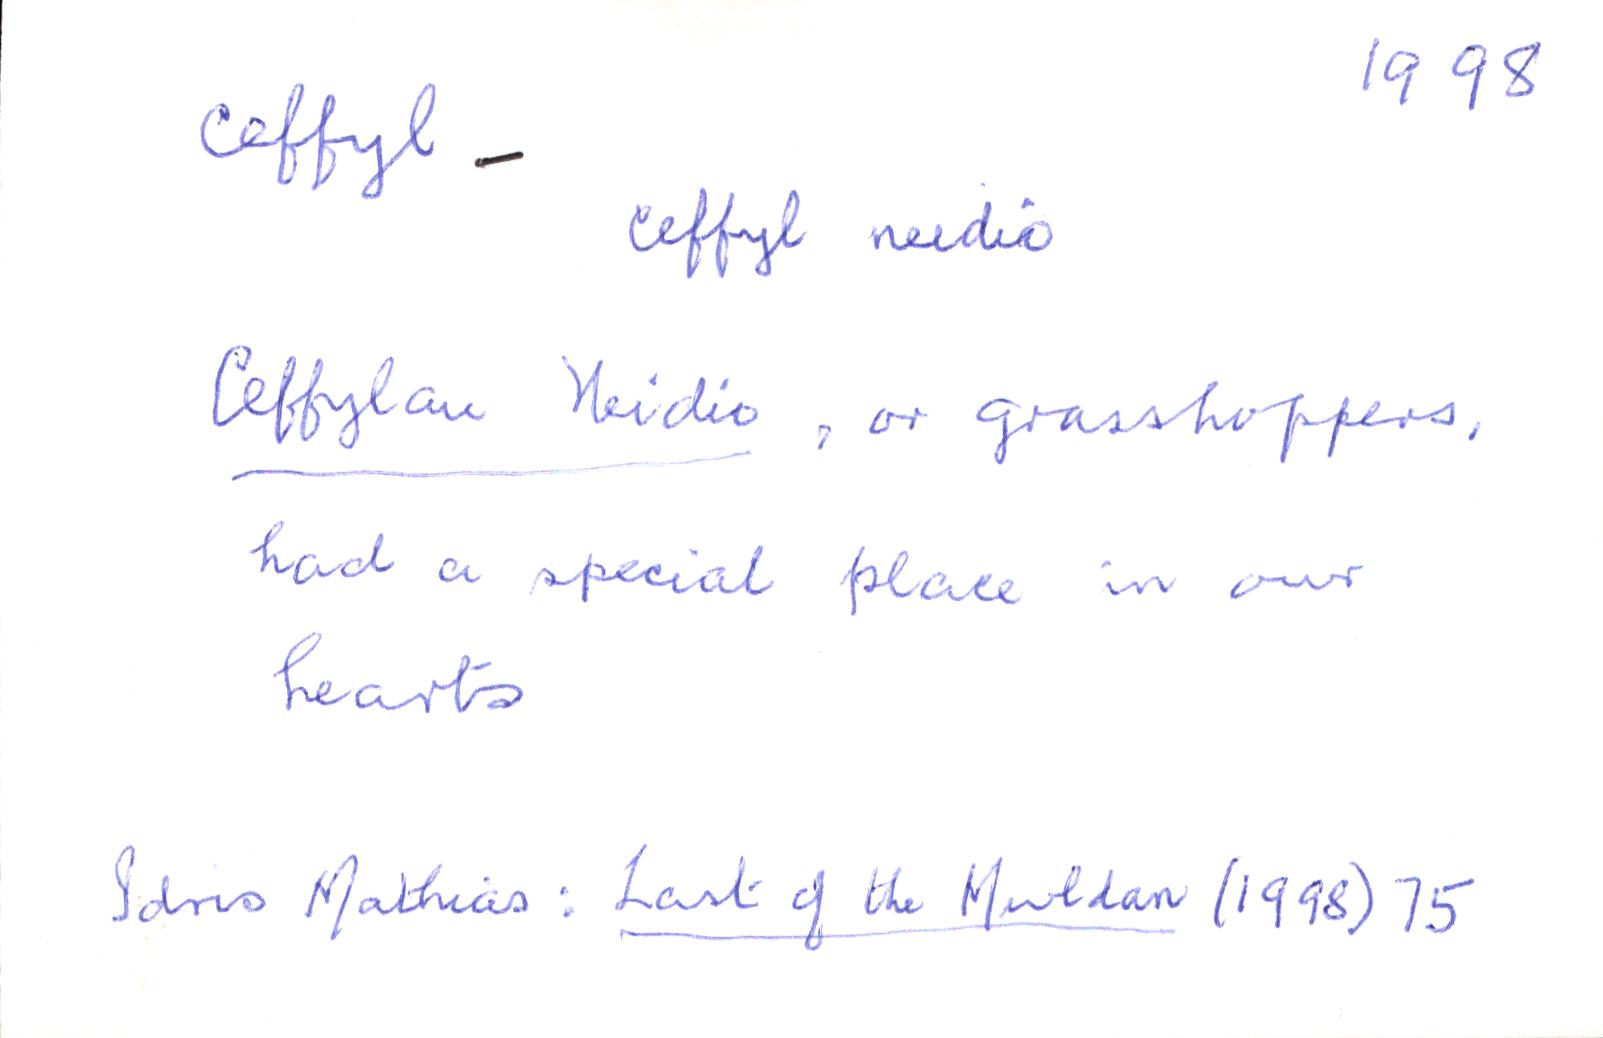 1998
ceffyl –
ceffyl neidio
Ceffylau Neidio, or grasshoppers,
had a special place in our
hearts
Idris Mathias: Last of the Mwldan (1998) 75